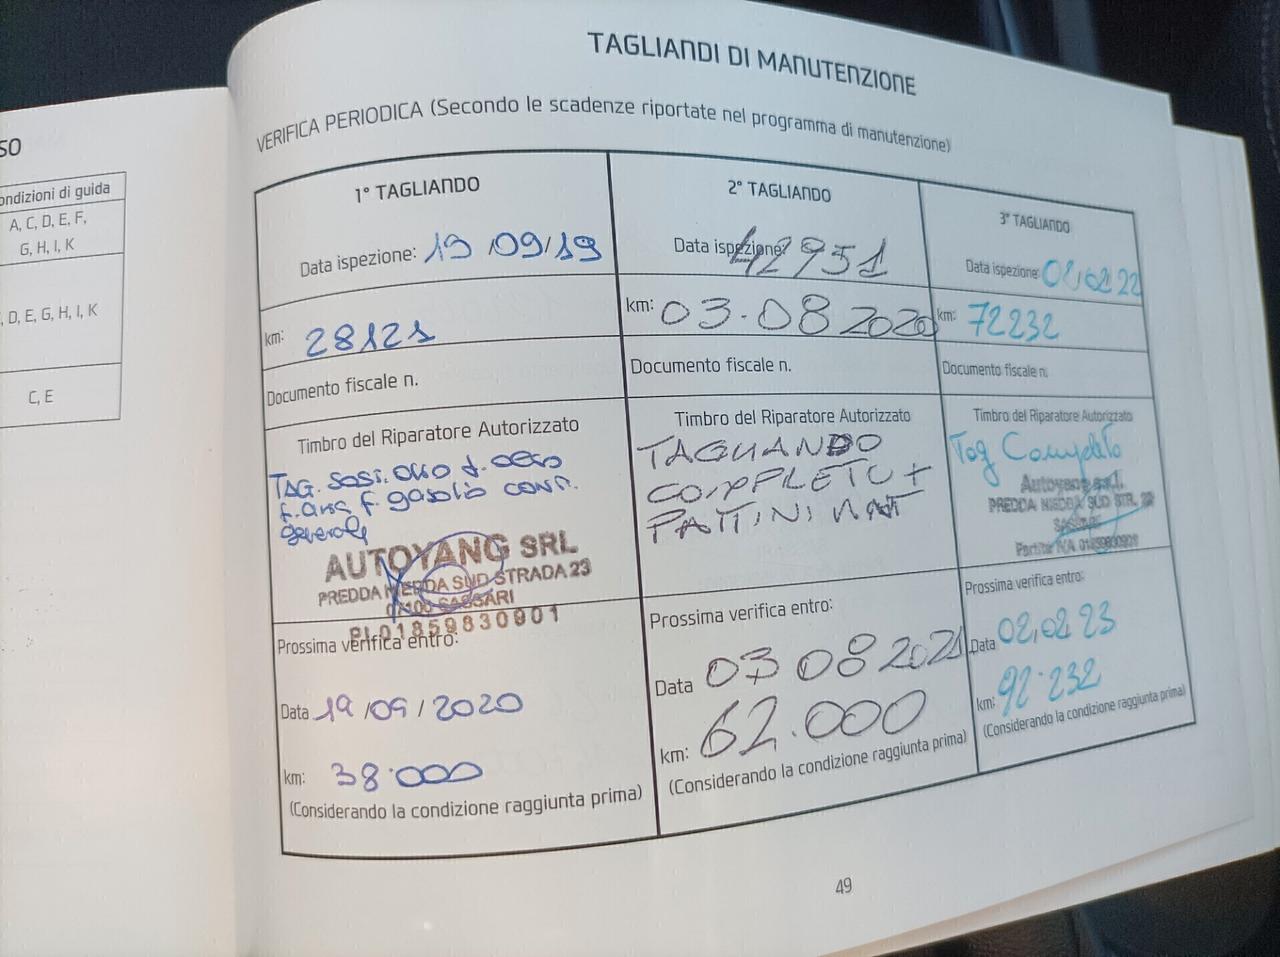 SO
ondizioni di guida
A, C, D, E, F,
G, H, I, K
, D, E, G, H, I, K
C, E
TAGLIANDI DI MANUTENZIONE
VERIFICA PERIODICA (Secondo le scadenze riportate nel programma di manutenzione)
1° TAGLIANDO
Data ispezione: 19/09/19
km: 28121
Documento fiscale n.
Timbro del Riparatore Autorizzato
TAG. sosi. olio f. olio
f. aria f. gasolio cont.
generale
AUTOYANG SRL
PREDDA NIEDDA SUD STRADA 23
07100 SASSARI
PI 01859830901
Prossima verifica entro:
Data 19/09/2020
km: 38.000
(Considerando la condizione raggiunta prima)
2° TAGLIANDO
Data ispezione: 42951
km: 03.08 2020
Documento fiscale n.
Timbro del Riparatore Autorizzato
TAGLIANDO
COMPLETO +
PATTINI
Prossima verifica entro:
Data 03 08 2021
km: 62.000
(Considerando la condizione raggiunta prima)
3° TAGLIANDO
Data ispezione: 02,02 22
km: 72232
Documento fiscale n.
Timbro del Riparatore Autorizzato
Tag Completo
Autoyang s.r.l.
PREDDA NIEDDA SUD STR. 23
SASSARI
Partita IVA 01859830901
Prossima verifica entro:
Data 02,02 23
km: 92.232
(Considerando la condizione raggiunta prima)
49